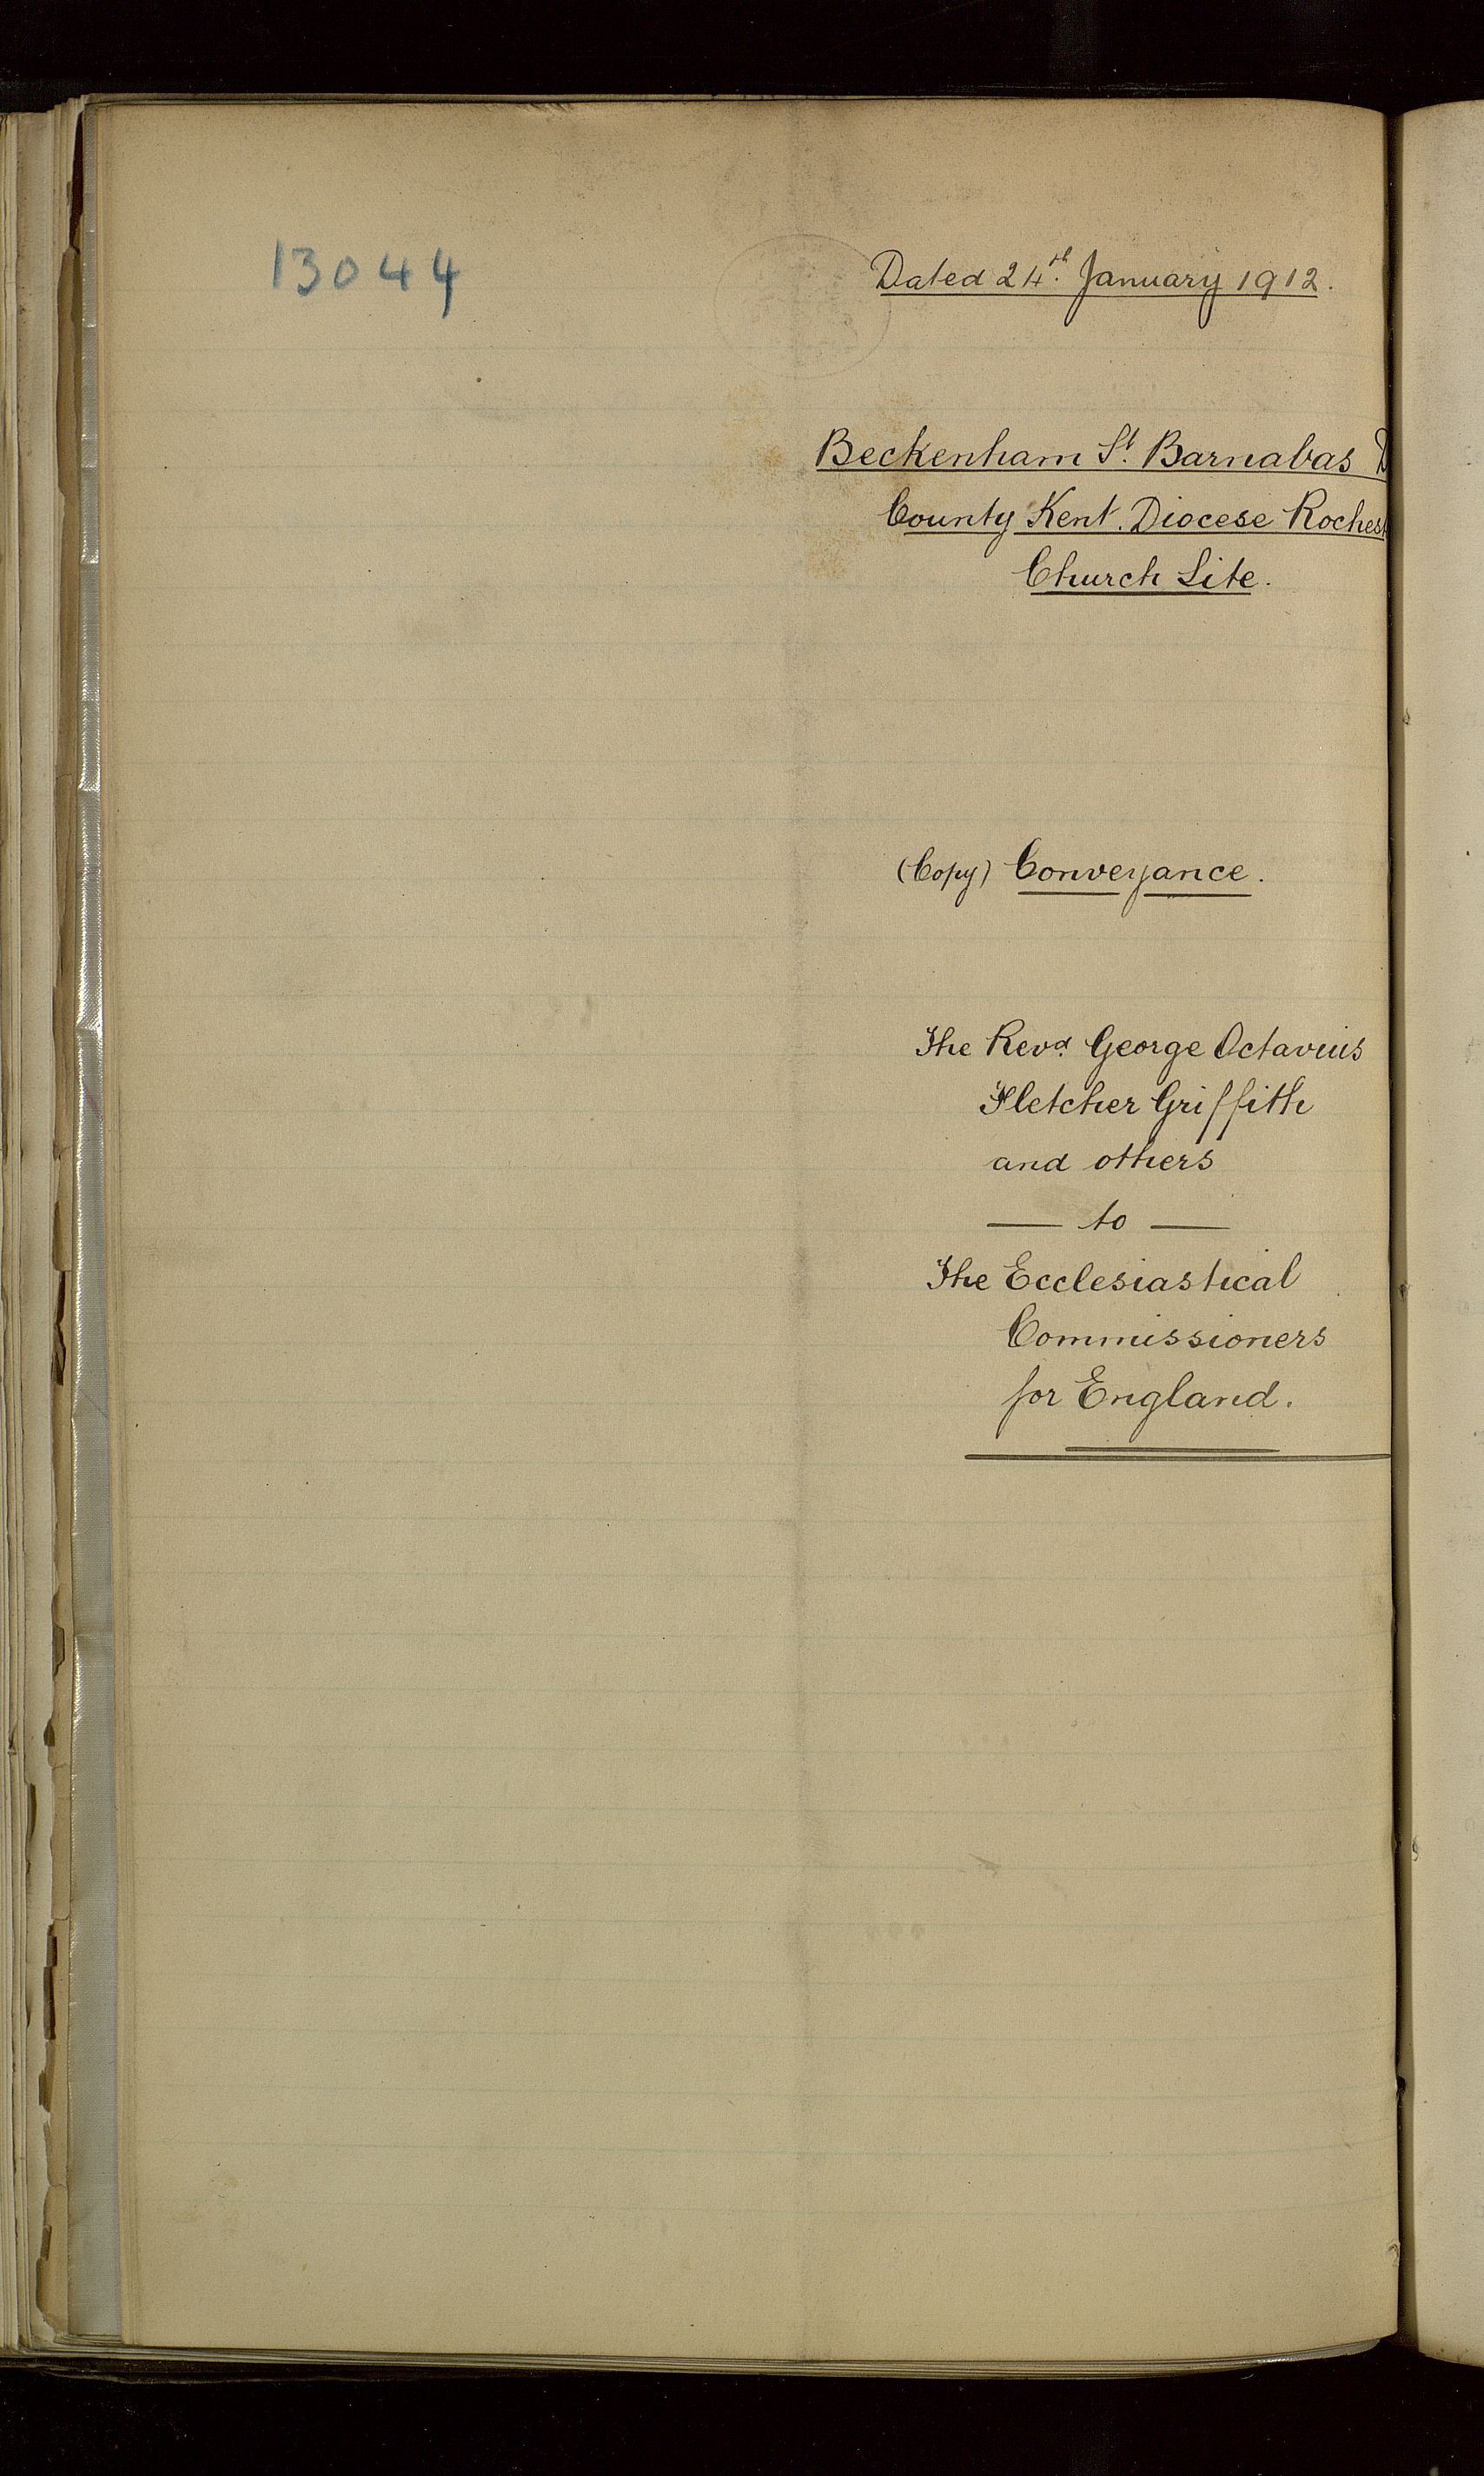 13044
Dated 24th. January 1912.
Beckenham St. Barnabas D
County Kent. Diocese Rochest
Church Site.
(Copy) Conveyance.
The Revd. George Octavius
Fletcher Griffith
and others
— to —
The Ecclesiastical
Commissioners
for England.